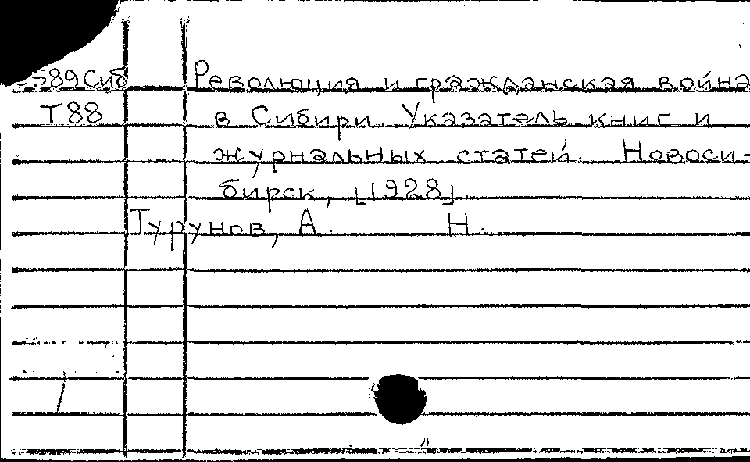 89Сиб Революция и гражданская война
Т88 в Сибири. Указатель книг и
журнальных статей. Новоси-
бирск, [1928].
Турунов, А. Н.